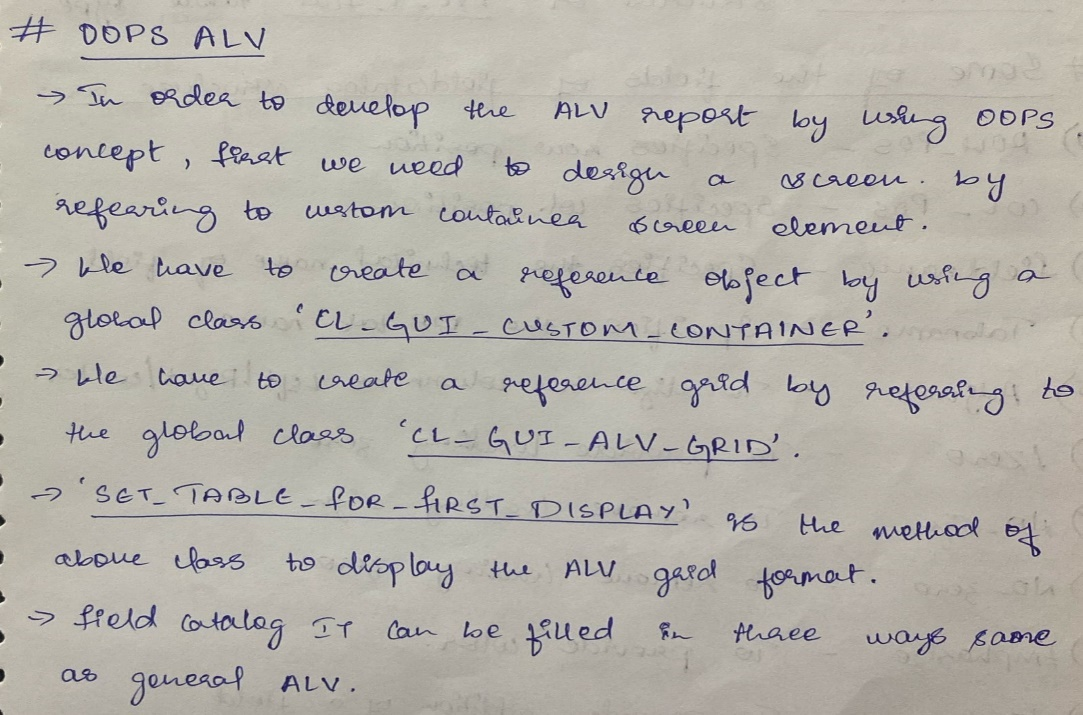 # OOPS ALV
→ In order to develop the ALV report by using OOPS
concept, first we need to design a screen. by
refearing to custom container screen element.
→ We have to create a reference object by using a
global class 'CL_GUI_CUSTOM_CONTAINER'.
→ We have to create a reference grid by referring to
the global class 'CL_GUI_ALV_GRID'.
→ 'SET_TABLE_FOR_FIRST_DISPLAY' is the method of
above class to display the ALV grid format.
→ field catalog IT can be filled in three ways same
as general ALV.